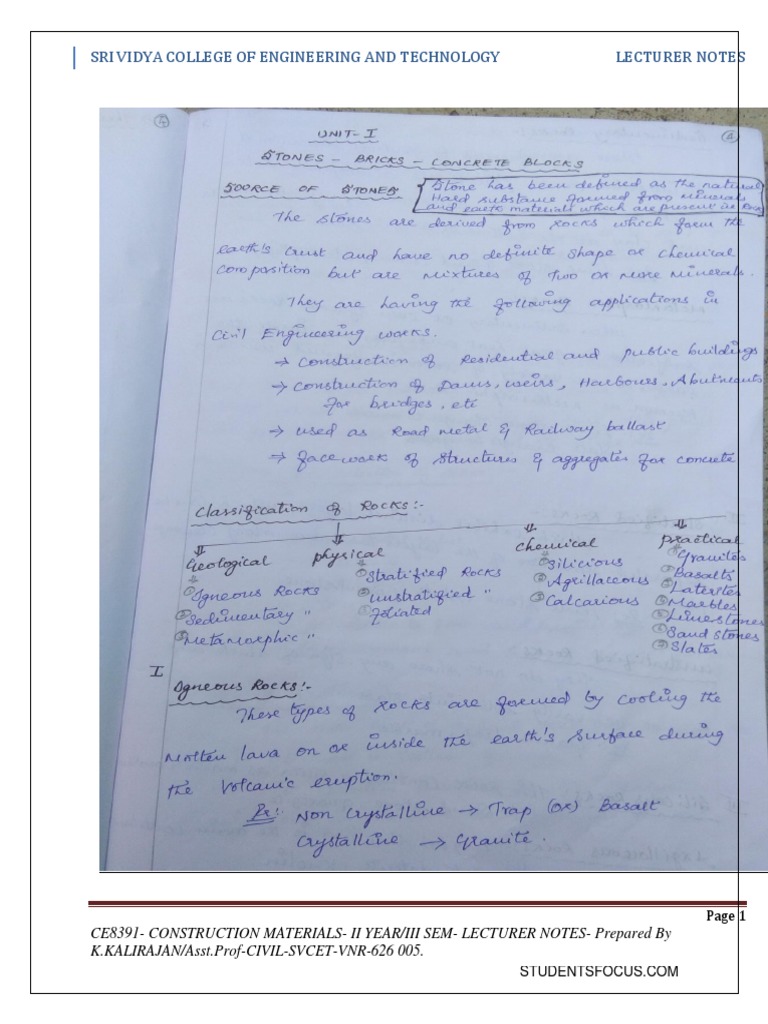 SRI VIDYA COLLEGE OF ENGINEERING AND TECHNOLOGY LECTURER NOTES
4 4
UNIT-I
STONES - BRICKS - CONCRETE BLOCKS
SOORCE OF STONES
Stone has been defined as the natural
Hard substance formed from minerals
and earth materials which are present in Rocks
The stones are derived from rocks which form the
earth's crust and have no definite shape or chemical
composition but are mixtures of two or more minerals.
They are having the following applications in
Civil Engineering works.
→ Construction of Residential and public buildings
→ Construction of Dams, weirs, Harbours, Abutments
for bridges, etc
→ used as Road metal & Railway ballast
→ facework of structures & aggregates for concrete
Classification of Rocks:-
Geological physical chemical practical
① Igneous Rocks
② Sedimentary "
③ Metamorphic "
① Stratified Rocks
② unstratified "
③ foliated
① Silicious
② Agrillaceous
③ Calcarious
① Granites
② Basalts
③ Laterites
④ Marbles
⑤ Limestones
⑥ Sand stones
⑦ Slates
I
Igneous Rocks:-
These types of rocks are formed by cooling the
molten lava on or inside the earth's surface during
the volcanic eruption.
Ex: Non Crystalline → Trap (or) Basalt
Crystalline → Granite.
Page 1
CE8391- CONSTRUCTION MATERIALS- II YEAR/III SEM- LECTURER NOTES- Prepared By
K.KALIRAJAN/Asst.Prof-CIVIL-SVCET-VNR-626 005.
STUDENTSFOCUS.COM